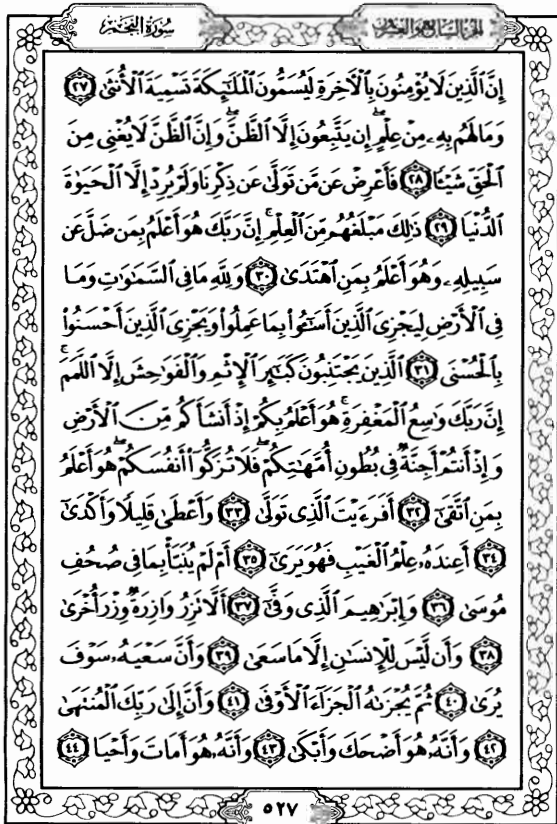 سُورَةُ النَّجْمِ
الجزء السابع والعشرون
إِنَّ ٱلَّذِينَ لَا يُؤْمِنُونَ بِٱلْأَخِرَةِ لَيُسَمُّونَ ٱلْمَلَٰٓئِكَةَ تَسْمِيَةَ ٱلْأُنثَىٰ ٢٧
وَمَا لَهُم بِهِۦ مِنْ عِلْمٍ ۖ إِن يَتَّبِعُونَ إِلَّا ٱلظَّنَّ ۖ وَإِنَّ ٱلظَّنَّ لَا يُغْنِى مِنَ
ٱلْحَقِّ شَيْـًٔا ٢٨ فَأَعْرِضْ عَن مَّن تَوَلَّىٰ عَن ذِكْرِنَا وَلَمْ يُرِدْ إِلَّا ٱلْحَيَوٰةَ
ٱلدُّنْيَا ٢٩ ذَٰلِكَ مَبْلَغُهُم مِّنَ ٱلْعِلْمِ ۚ إِنَّ رَبَّكَ هُوَ أَعْلَمُ بِمَن ضَلَّ عَن
سَبِيلِهِۦ وَهُوَ أَعْلَمُ بِمَنِ ٱهْتَدَىٰ ٣٠ وَلِلَّهِ مَا فِى ٱلسَّمَٰوَٰتِ وَمَا
فِى ٱلْأَرْضِ لِيَجْزِىَ ٱلَّذِينَ أَسَٰٓـُٔوا۟ بِمَا عَمِلُوا۟ وَيَجْزِىَ ٱلَّذِينَ أَحْسَنُوا۟
بِٱلْحُسْنَى ٣١ ٱلَّذِينَ يَجْتَنِبُونَ كَبَٰٓئِرَ ٱلْإِثْمِ وَٱلْفَوَٰحِشَ إِلَّا ٱللَّمَمَ ۚ
إِنَّ رَبَّكَ وَٰسِعُ ٱلْمَغْفِرَةِ ۚ هُوَ أَعْلَمُ بِكُمْ إِذْ أَنشَأَكُم مِّنَ ٱلْأَرْضِ
وَإِذْ أَنتُمْ أَجِنَّةٌ فِى بُطُونِ أُمَّهَٰتِكُمْ ۖ فَلَا تُزَكُّوٓا۟ أَنفُسَكُمْ ۖ هُوَ أَعْلَمُ
بِمَنِ ٱتَّقَىٰٓ ٣٢ أَفَرَءَيْتَ ٱلَّذِى تَوَلَّىٰ ٣٣ وَأَعْطَىٰ قَلِيلًا وَأَكْدَىٰٓ
٣٤ أَعِندَهُۥ عِلْمُ ٱلْغَيْبِ فَهُوَ يَرَىٰٓ ٣٥ أَمْ لَمْ يُنَبَّأْ بِمَا فِى صُحُفِ
مُوسَىٰ ٣٦ وَإِبْرَٰهِيمَ ٱلَّذِى وَفَّىٰٓ ٣٧ أَلَّا تَزِرُ وَازِرَةٌ وِزْرَ أُخْرَىٰ
٣٨ وَأَن لَّيْسَ لِلْإِنسَٰنِ إِلَّا مَا سَعَىٰ ٣٩ وَأَنَّ سَعْيَهُۥ سَوْفَ
يُرَىٰ ٤٠ ثُمَّ يُجْزَىٰهُ ٱلْجَزَآءَ ٱلْأَوْفَىٰ ٤١ وَأَنَّ إِلَىٰ رَبِّكَ ٱلْمُنتَهَىٰ
٤٢ وَأَنَّهُۥ هُوَ أَضْحَكَ وَأَبْكَىٰ ٤٣ وَأَنَّهُۥ هُوَ أَمَاتَ وَأَحْيَا ٤٤
٥٢٧